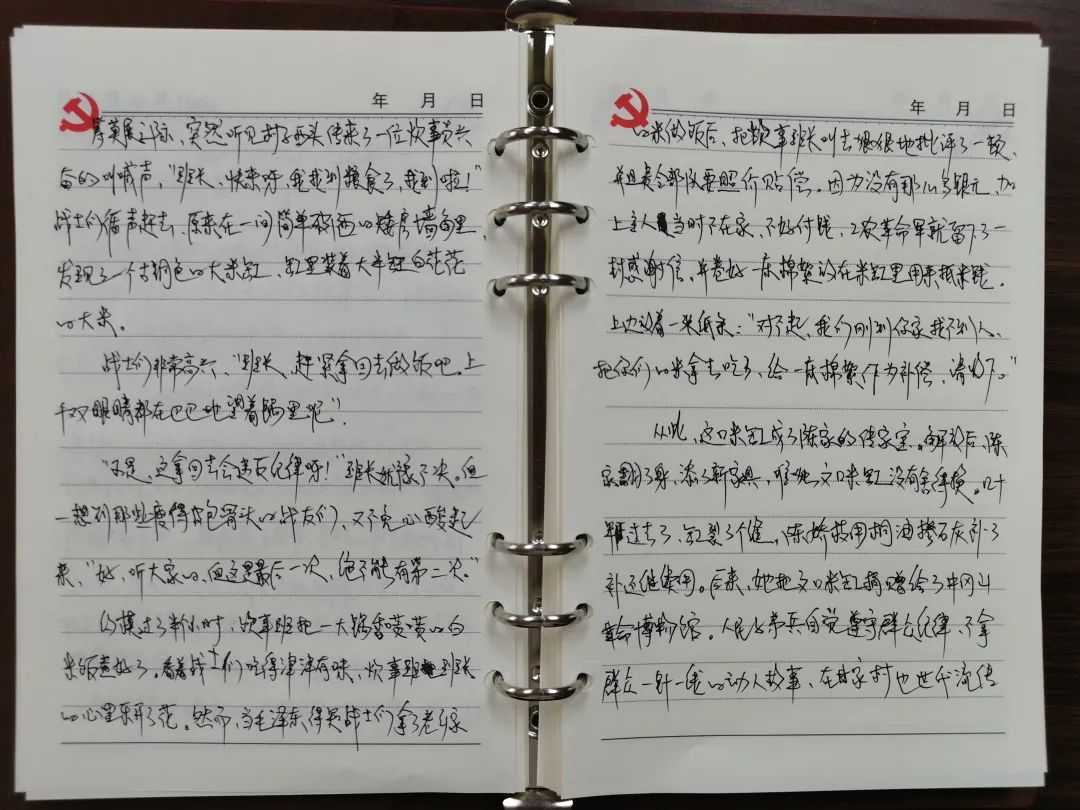 年 月 日
莫展之际，突然听见村子西头传来了一位炊事员兴
奋的叫喊声，“班长，快来呀，我找到粮食了，找到啦！”
战士们循声赶去，原来在一间简单破陋的矮房墙角里，
发现了一个古铜色的大米缸，缸里装着大半缸白花花
的大米。
战士们非常高兴，“班长，赶紧拿回去做饭吧。上
千双眼睛都在巴巴地望着锅里呢”
“不是，这拿回去会违反纪律呀！”班长犹豫不决。但
一想到那些瘦得皮包骨头的战友们，又不免心酸起
来，“好，听大家的，但这是最后一次，绝不能有第二次。”
约摸过了半小时，炊事班把一大锅香喷喷的白
米饭煮好了。看着战士们吃得津津有味，炊事班班长
的心里乐开了花。然而，当毛泽东得知战士们拿了老乡家
年 月 日
的米做饭后，把炊事班长叫去狠狠地批评了一顿，
并且责令部队要照价赔偿。因为没有那么多银元，加
上主人当时不在家，不好付钱，工农革命军就留下了一
封感谢信，并卷好一床棉絮放在米缸里用来抵米钱，
上边沾着一米纸条：“对不起，我们刚到你家找不到人，
把你们的米拿去吃了，给一床棉絮作为补偿，请收下。”
从此，这口米缸成了陈家的传家宝。解放后，陈
家翻了身，添了新家具，唯独这口米缸没有舍得换。几十
年过去了，缸裂了个缝，陈娇按用桐油掺石灰补了
补还继续用。后来，她把这口米缸捐赠给了井冈山
革命博物馆。人民子弟兵自觉遵守群众纪律，不拿
群众一针一线的动人故事，在 家村也世代流传